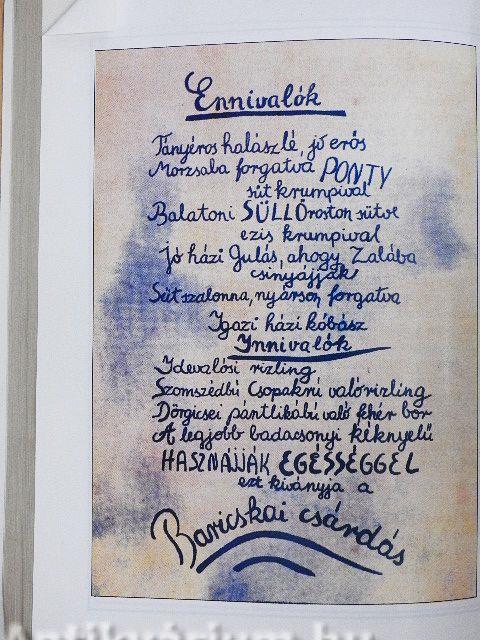 Ennivalók
Tányéros halászlé, jó erős
Morzsaba forgatva PONTY
süt krumpival
Balatoni SÜLLŐ roston sütve
ezis krumpival
Jó házi Gulás, ahogy Zalába
csinyájják
Süt szalonna, nyárson forgatva
Igazi házi kóbász
Innivalók
Idevalósi rizling
Szomszédbú Csopakrú való rizling
Dörgicsei pántlikábú való fehér bor
A legjobb badacsonyi kéknyelű
HASZNÁJJÁK EGÉSSÉGGEL
ezt kiványja a
Baricskai csárdás
Antikvárium.hu